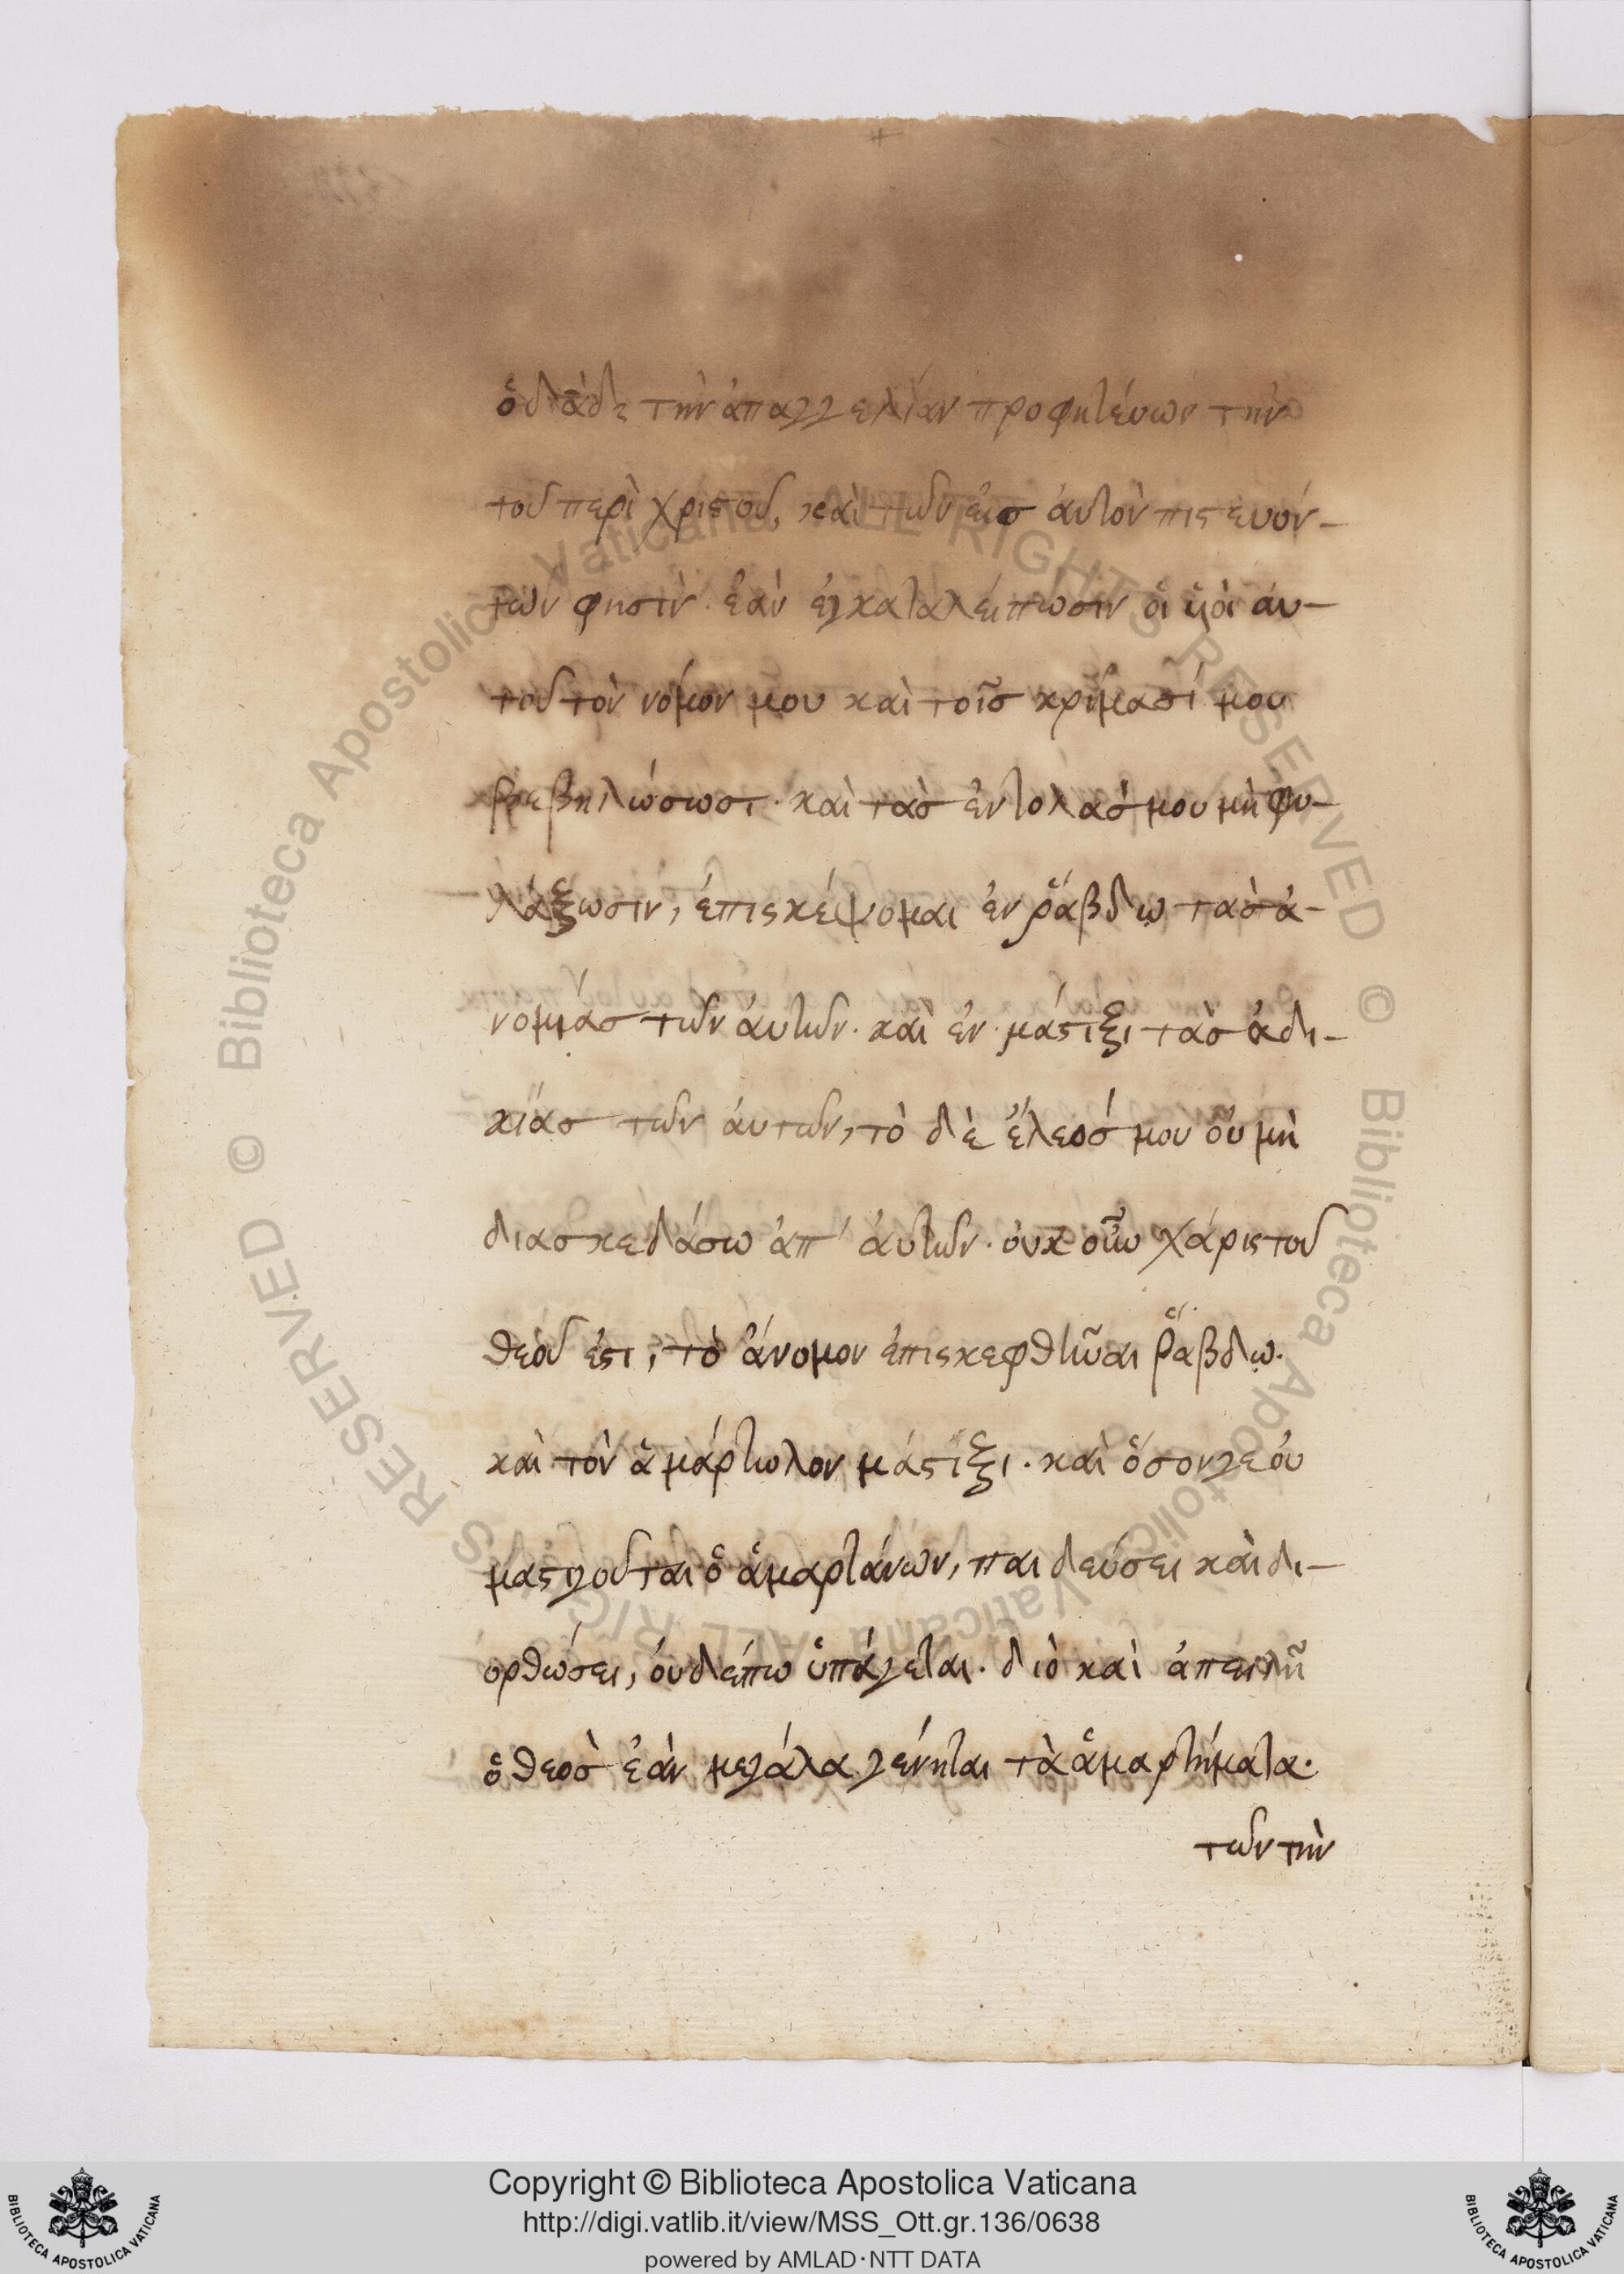 ὁ δαδ̀ε τὴν ἀπαγγελίαν προφητέυων τὴν
τοῦ περὶ χριστοῦ, καὶ τῶν ἐισ ἀυτὸν πιστευόν-
των φησὶν· ἐὰν ἐγκαταλείπωσιν ὁι ὑιὸι ἀυ-
τοῦ τὸν νόμον μου καὶ τοῖσ κρίμασί μου
βεβηλώσωσι· καὶ τὰσ ἐντολάσ μου μὴ φυ-
λάξωσιν, ἐπισκέψομαι ἐν ῥάβδω τὰσ ἀ-
νομίασ τῶν ἀυτῶν· καὶ ἐν μάστιξι τὰσ ἀδι-
κίασ τῶν ἀυτῶν, τὸ δὲ ἔλεόσ μου ὀυ μὴ
διασκεδάσω ἀπ' ἀυτῶν· ὀυχ οὕτω χάρισ τοῦ
θεοῦ ἐστι, τὸ ἄνομον ἐπισκεφθῆναι ῥάβδω.
καὶ τὸν ἁμάρτωλον μάστιξι· καὶ ὅσον γε ὀυ
μαστιγοῦται ὁ ἁμαρτάνων, παιδεύσει καὶ δι-
ορθώσει, ὀυδέπω ὑπάγεται· διὸ καὶ ἀπειλῆ
ὁ θεὸσ ἐὰν μεγάλα γένηται τὰ ἁμαρτήματα·
τῶν τὴν
Copyright © Biblioteca Apostolica Vaticana
http://digi.vatlib.it/view/MSS_Ott.gr.136/0638
powered by AMLAD·NTT DATA
BIBLIOTECA APOSTOLICA VATICANA
BIBLIOTECA APOSTOLICA VATICANA